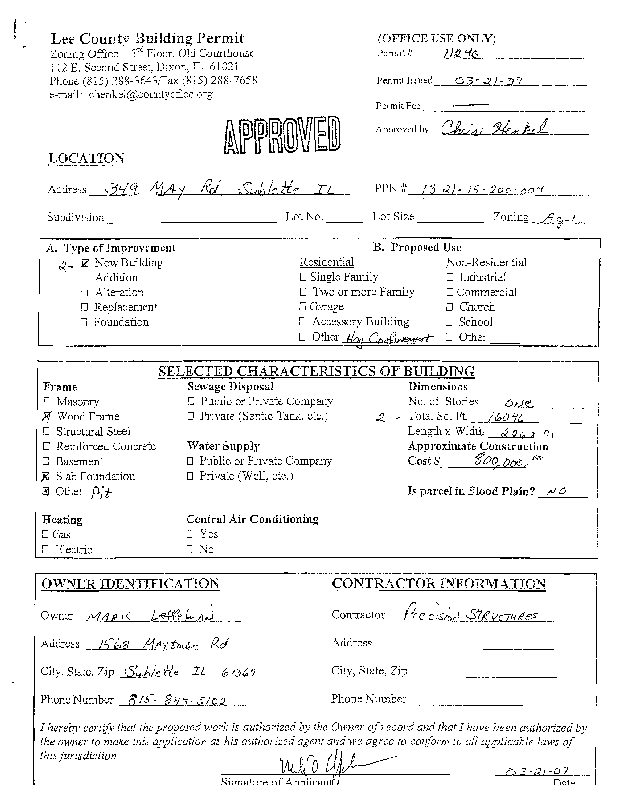 Lee County Building Permit
Zoning Office - 3rd Floor, Old Courthouse
112 E. Second Street, Dixon, IL 61021
Phone (815) 288-3643/Fax (815) 288-7658
e-mail: chenkel@countyoffice.org
(OFFICE USE ONLY)
Permit #
Permit Issued 03-21-07
Permit Fee
Approved by Chris Henkel
APPROVED
LOCATION
Address 349 May Rd Sublette IL PPN # 13-21-15-200-004
Subdivision Lot No. Lot Size Zoning Ag-1
A. Type of Improvement B. Proposed Use
2- New Building Residential Non-Residential
Addition Single Family Industrial
Alteration Two or more Family Commercial
Replacement Garage Church
Foundation Accessory Building School
Other Hog Confinement Other
SELECTED CHARACTERISTICS OF BUILDING
Frame Sewage Disposal Dimensions
Masonry Public or Private Company No. of Stories one
Wood Frame Private (Septic Tank, etc.) 2 - Total Sq. Ft. 16046
Structural Steel Length x Width
Reinforced Concrete Water Supply Approximate Construction
Basement Public or Private Company Cost $ 800,000.00
Slab Foundation Private (Well, etc.)
Other Pit Is parcel in Flood Plain? NO
Heating Central Air Conditioning
Gas Yes
Electric No
OWNER IDENTIFICATION CONTRACTOR INFORMATION
Owner Mark Contractor Precision Structures
Address 1568 Maytown Rd Address
City, State, Zip Sublette IL 61367 City, State, Zip
Phone Number 815-849-5102 Phone Number
I hereby certify that the proposed work is authorized by the Owner of record and that I have been authorized by
the owner to make this application as his authorized agent and we agree to conform to all applicable laws of
this jurisdiction
03-21-07
Signature of Applicant Date